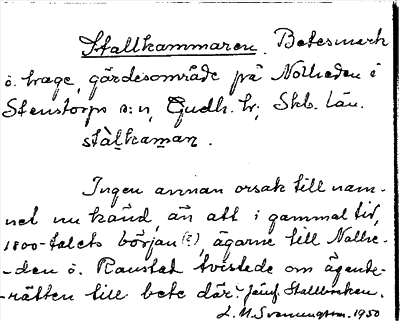 Stallkammaren. Betesmark
o. hage, gärdesområde på Nolheden i
Stenstorps s:n, Gudh. hd; Skb. län.
stàlkaman.
Ingen annan orsak till nam-
net nu känd, än att i gammal tid,
1800-talets början (?), ägarne till Nolhe-
-den o. Ranstad tvistade om ägande-
-rätten till bete där. Jämf. Stallbacken.
L. M. Svenungsson. 1950